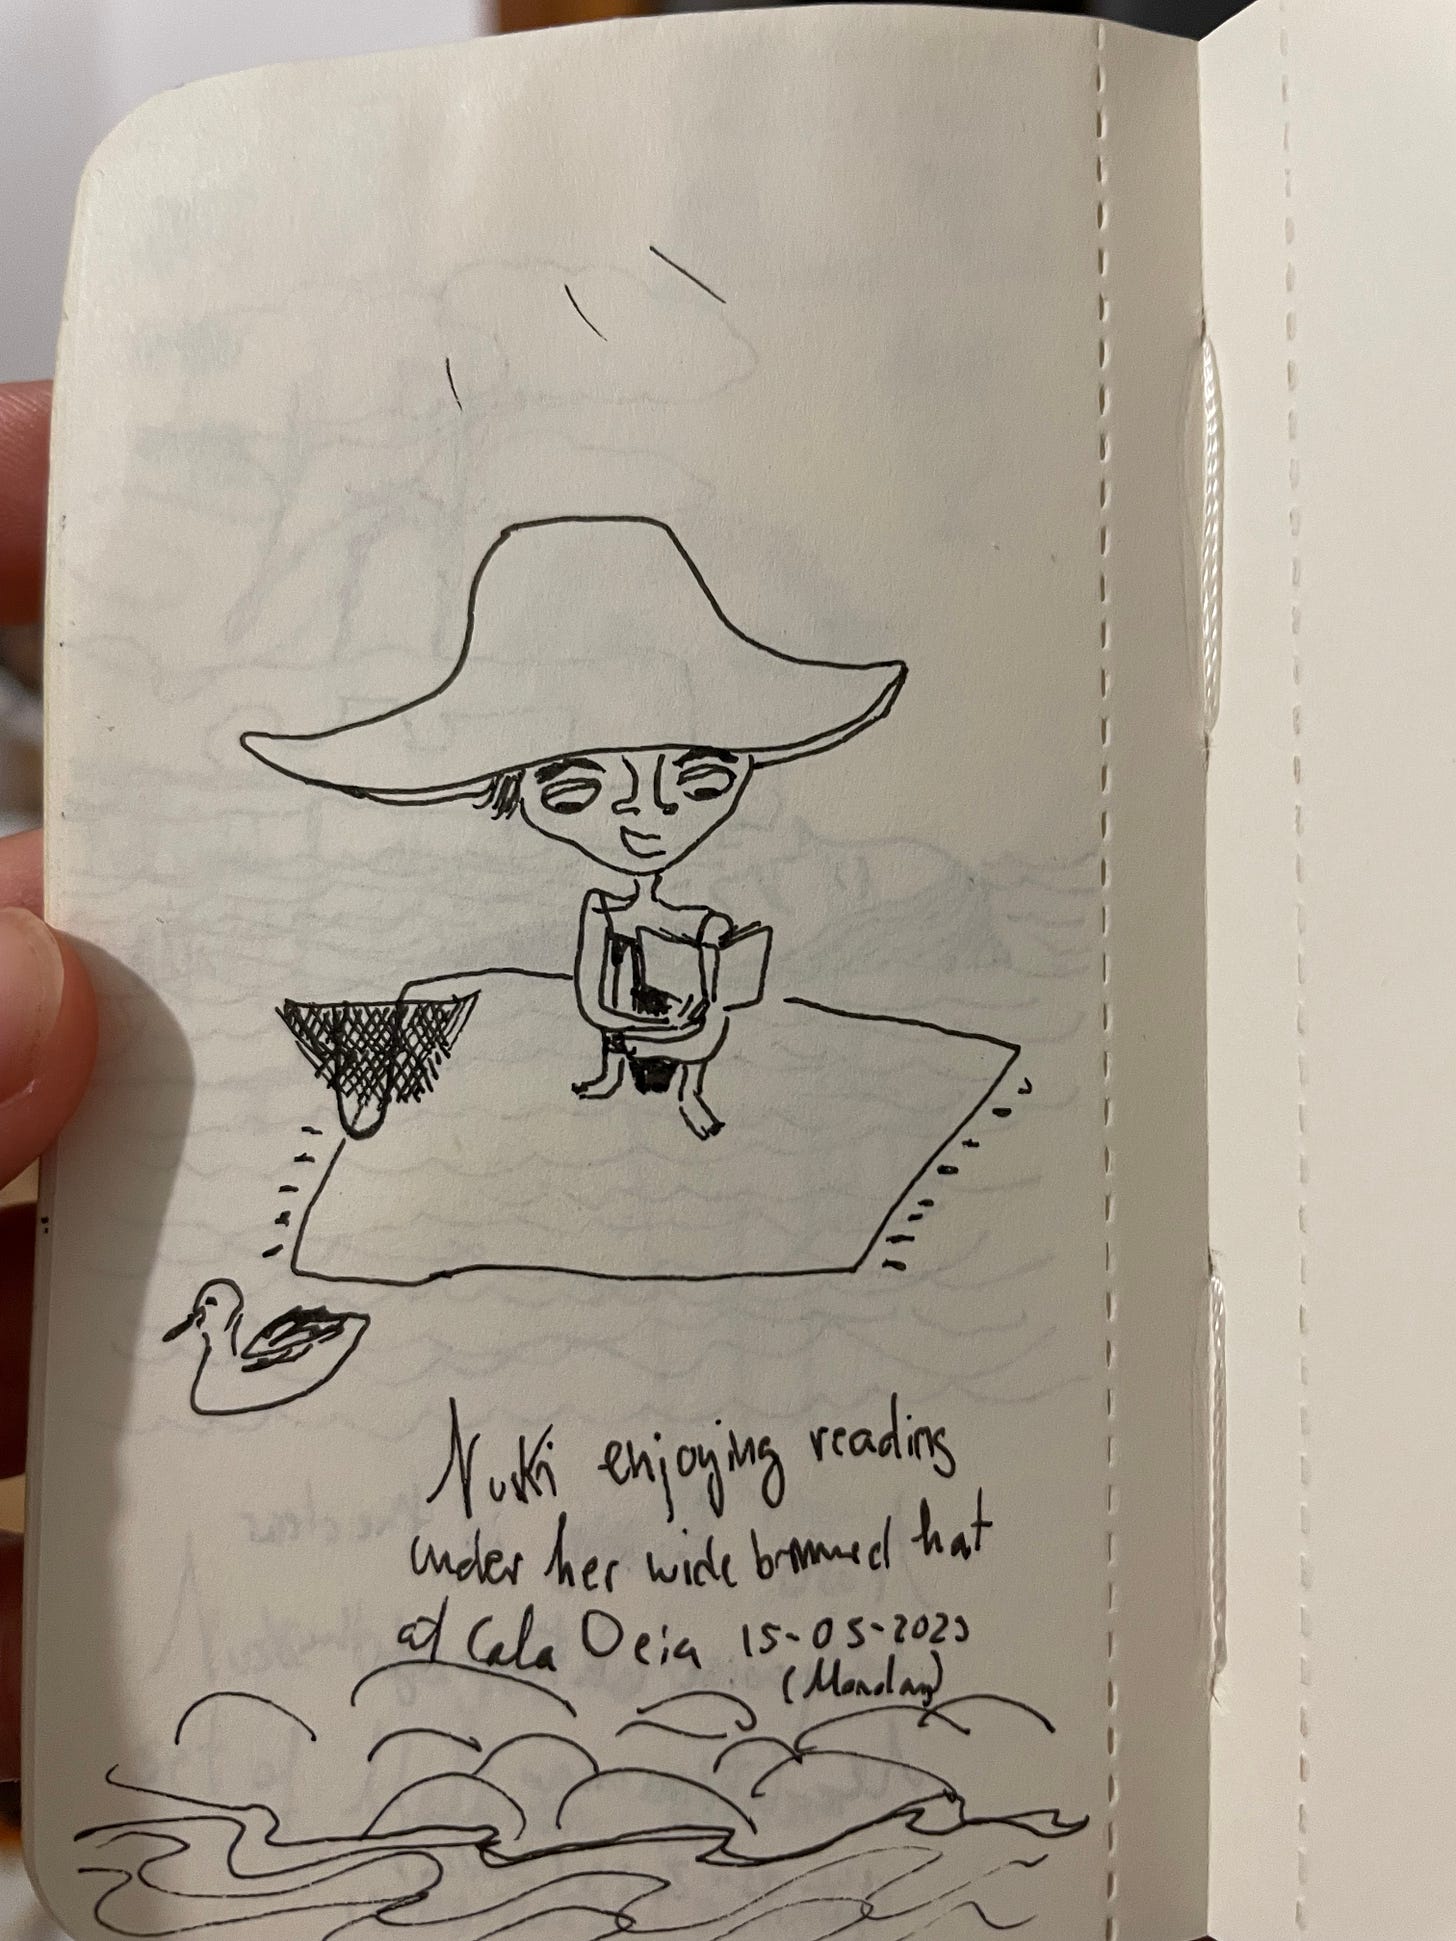 Nuski enjoying reading
under her wide brimmed hat
at Cala Deia 15-05-2023
(Monday)